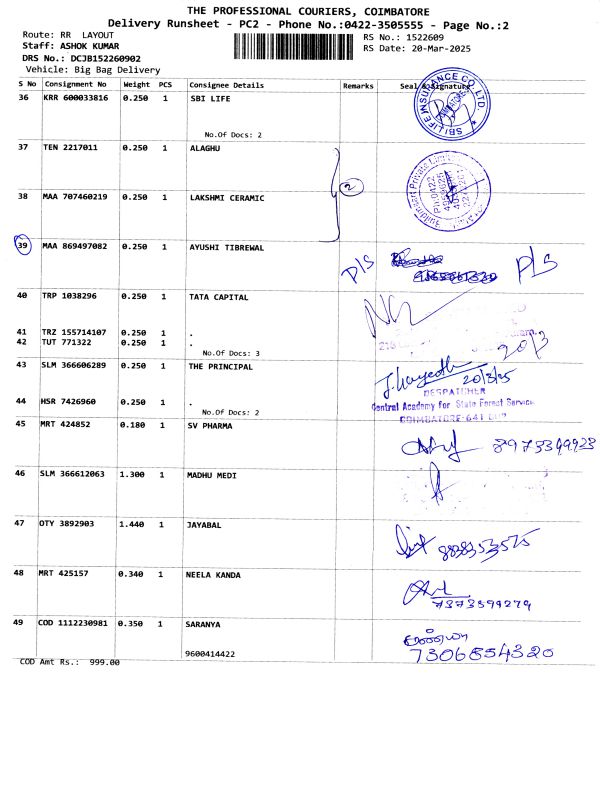 THE PROFESSIONAL COURIERS, COIMBATORE
Delivery Runsheet - PC2 - Phone No.:0422-3505555 - Page No.:2
Route: RR LAYOUT RS No.: 1522609
Staff: ASHOK KUMAR RS Date: 20-Mar-2025
DRS No.: DCJB152260902
Vehicle: Big Bag Delivery
S No Consignment No Weight PCS Consignee Details Remarks Seal & Signature
36 KRR 600033816 0.250 1 SBI LIFE
SBI LIFE INSURANCE CO. LTD.
No.Of Docs: 2
37 TEN 2217011 0.250 1 ALAGHU
2
38 MAA 707460219 0.250 1 LAKSHMI CERAMIC
39 MAA 869497082 0.250 1 AYUSHI TIBREWAL
P/S P/S
40 TRP 1038296 0.250 1 TATA CAPITAL
41 TRZ 155714107 0.250 1 .
42 TUT 771322 0.250 1 .
20/3
No.Of Docs: 3
43 SLM 366606289 0.250 1 THE PRINCIPAL
20/3/25
DESPATCHER
44 HSR 7426960 0.250 1 .
Central Academy for State Forest Service
No.Of Docs: 2
COIMBATORE-641
45 MRT 424852 0.180 1 SV PHARMA
8973399923
46 SLM 366612063 1.300 1 MADHU MEDI
47 OTY 3892903 1.440 1 JAYABAL
8838353575
48 MRT 425157 0.340 1 NEELA KANDA
7373599279
49 COD 1112230981 0.350 1 SARANYA
9600414422 7306854320
COD Amt Rs.: 999.00